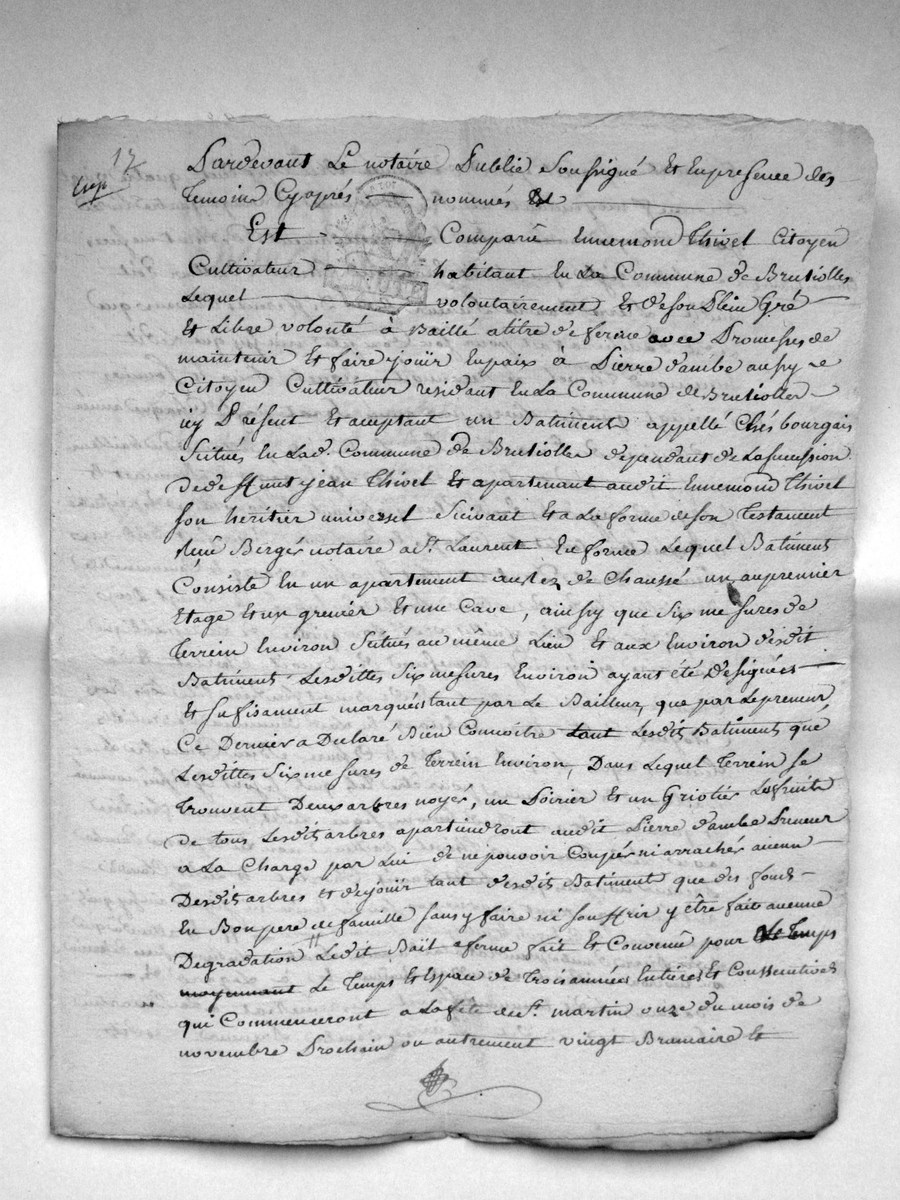 17
Exp
Pardevant Le notaire Public Soussigné Et Enpresence des
Temoins Cyaprés nommés
Est Comparu Ennemond Thivel Citoyen
Cultivateur habitant En La Commune de Brussiolles
Lequel volontairement Et de son Plein Gré
Et Libre volonté à Baillé a titre de ferme avec Promesses de
maintenir Et faire jouir En paix à Pierre dambe aussy
Citoyen Cultivateur residant En La Commune de Brussiolles
icy Présent Et aceptant un Batiment appellé Chés bourgais
Scitués En Lad. Commune de Brussiolles dependant de La succession
De deffunt jean Thivel Et apartenant audit Ennemond Thivel
son heritier universel Suivant Et a La forme de son Testament
Reçu Berger notaire a St. Laurent En forme Lequel Batiment
Consiste En un apartement au Rez de Chaussé un au premier
Etage Et un grenier Et une Cave, ainssy que Six mesures de
Terrein Environ Scitués au même Lieu Et aux Environ desdit
Batiments Lesdittes Six mesures Environ ayant été Designées
Et sufisament marquées tant par Le Bailleur, que par Le preneur,
Ce Dernier a Declaré Bien Connoitre tant Lesdits Batiments que
Lesdittes Six mesures de Terrein Environ, Dans Lequel Terrein se
trouvent Deux arbres noyés, un Poirier Et un Griotié Les fruits
de tous Lesdits arbres apartiendront audit Pierre dambe Preneur
a La Charge par Lui de ne pouvoir Coupés ni arracher aucun
Desdits arbres Et de jouir tant desdits Batiment que des fonds
En Bon pere de famille sans y faire ni souffrir y être fait aucune
Degradation Ledit Bail a ferme fait Et Convenu pour Le temps
moyennant Le Temps Et Espace de Trois années Entieres Et Conssecutives
qui Commenceront a La fête de St. martin onze du mois de
novembre Prochain ou autrement vingt Brumaire Et